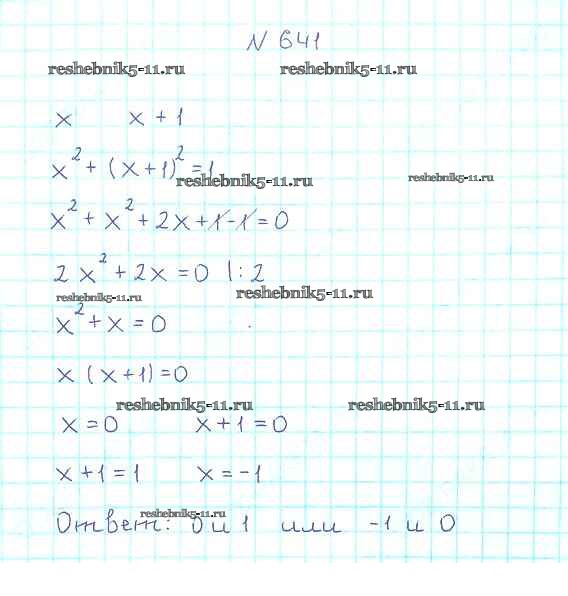 N 641
reshebnik5-11.ru reshebnik5-11.ru
x x + 1
x² + (x + 1)² = 1
reshebnik5-11.ru reshebnik5-11.ru
x² + x² + 2x + 1 - 1 = 0
2x² + 2x = 0 |: 2
reshebnik5-11.ru reshebnik5-11.ru
x² + x = 0
x (x + 1) = 0
reshebnik5-11.ru reshebnik5-11.ru
x = 0 x + 1 = 0
x + 1 = 1 x = -1
reshebnik5-11.ru
Ответ: 0 и 1 или -1 и 0